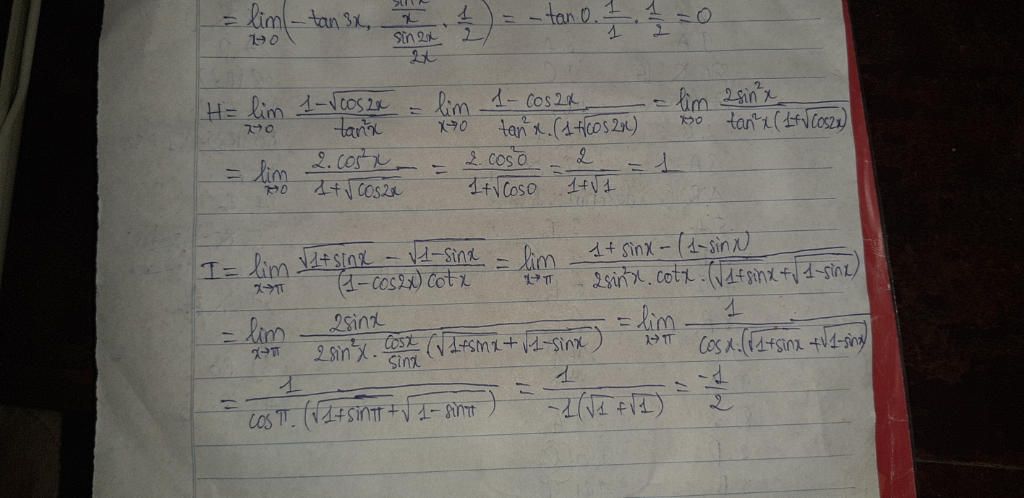 = lim x→0 (−tan 3x. (sinx/x)/(sin2x/2x) . 1/2) = −tan 0. 1/1 . 1/2 = 0
H = lim x→0 (1−√cos2x)/(tan²x) = lim x→0 (1−cos2x)/(tan²x.(1+√cos2x)) = lim x→0 (2sin²x)/(tan²x(1+√cos2x))
= lim x→0 (2.cos²x)/(1+√cos2x) = (2.cos²0)/(1+√cos0) = 2/(1+√1) = 1
I = lim x→π (√1+sinx − √1−sinx)/((1−cos2x)cotx) = lim x→π (1+sinx−(1−sinx))/(2sin²x.cotx.(√1+sinx+√1−sinx))
= lim x→π (2sinx)/(2sin²x.cosx/sinx(√1+sinx+√1−sinx)) = lim x→π 1/(cosx.(√1+sinx+√1−sinx))
= 1/(cosπ.(√1+sinπ+√1−sinπ)) = 1/(−1(√1+√1)) = −1/2